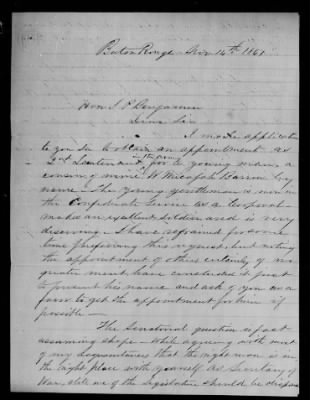 Baton Rouge Nov 14th 1861
Hon J P Benjamin
Dear Sir
I make application
to you to obtain an appointment as
2nd Lieutenant in the army for a young man, a
cousin of mine W Micajah Barrow by
name The young gentleman is now in
the Confederate Service as a Corporal
makes an excellent soldier and is very
deserving. I have refrained for some
time preferring this request, but noting
the appointment of others entirely of no
greater merit, have concluded it just
to present his name and ask of you as a
favor to get the appointment for him if
possible —
The Senatorial question is fast
assuming shape — While agreeing with most
of my acquaintances that the right man is in
the right place with yourself as Secretary of
War, still we of the Legislature should be